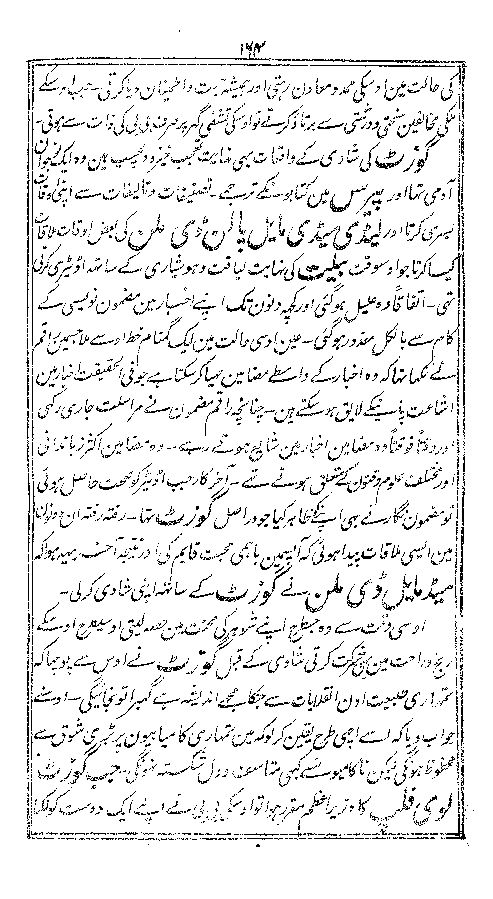 ۱۶۴
کی حالت مین اوسکی ممد و معاون رہتی اور ہمیشہ ہمت و اطمینان دیا کرتی - جب اوسکے
ملکی مخالفین سختی و درشتی سے برتاؤ کرتے تو اوسکی تشفی گہر پر صرف بی بی کی ذات سے ہوتی -
گوزٹ کی شادی کے واقعات بہی نہایت تعجب خیز و دلچسپ ہین وہ ایک نوجوان
آدمی تہا اور پیرس مین کتابونکے ترجمے - تصنیفات و تالیفات سے اپنی اوقات
بسری کرتا اور لیڈی میڈی مایل پالن ڈی ملن کی بعض اوقات ملاقات
کیا کرتا جو اوسوقت پبلیسٹ کی نہایت لیاقت و ہوشیاری کے ساتہ اڈیٹری کرتی
تہی - اتفاقاً وہ علیل ہوگئی اور کچہ دنون تک اپنے اخبار مین مضمون نویسی کے
کام سے بالکل معذور ہوگئی - عین اوسی حالت مین ایک گمنام خط اوسے ملا جسمین راقم
نے لکہا تہا کہ وہ اخبار کے واسطے مضامین مہیا کرسکتا ہے جو فی الحقیقت اخبار مین
اشاعت پانیکے لایق ہوسکتے ہین - چنانچہ راقم مضمون نے مراسلت جاری رکہی
اور وقتاً فوقتاً وہ مضامین اخبار مین شایع ہوتے رہے - وہ مضامین اکثر زباندانی
اور مختلف علوم و فنون کے متعلق ہوتے تہے - آخر کار جب اڈیٹر کو صحت حاصل ہوئی
تو مضمون نگار نے بہی اپنے کو ظاہر کیا جو دراصل گوزٹ تہا - رفتہ رفتہ ان دونون
مین ایسی ملاقات پیدا ہوئی کہ آپسمین باہمی محبت قایم کی اور نتیجہ آخر یہ ہوا کہ
میڈمایل ڈی ملن نے گوزٹ کے ساتہ اپنی شادی کرلی -
اوسی وقت سے وہ جسطرح اپنے شوہر کی محنت مین حصہ لیتی اوسیطرح اوسکے
رنج و راحت مین بہی شرکت کرتی شادی کے قبل گوزٹ نے اوس سے پوچہا کہ
تمہاری طبیعت اون انقلابات سے جنکا مجہے اندیشہ ہے گہبرا تو نجائیگی - اوسنے
جواب دیا کہ اسے اچہی طرح یقین کرلو کہ مین تمہاری کامیابیون پر بڑی شوق سے
محظوظ ہونگی لیکن ناکامیونسے کبہی متاسف و دل شکستہ نہونگی - جب گوزٹ
لومی فلپ کا وزیر اعظم مقرر ہوا تو اوسکی بی بی نے اپنے ایک دوست کو لکہا